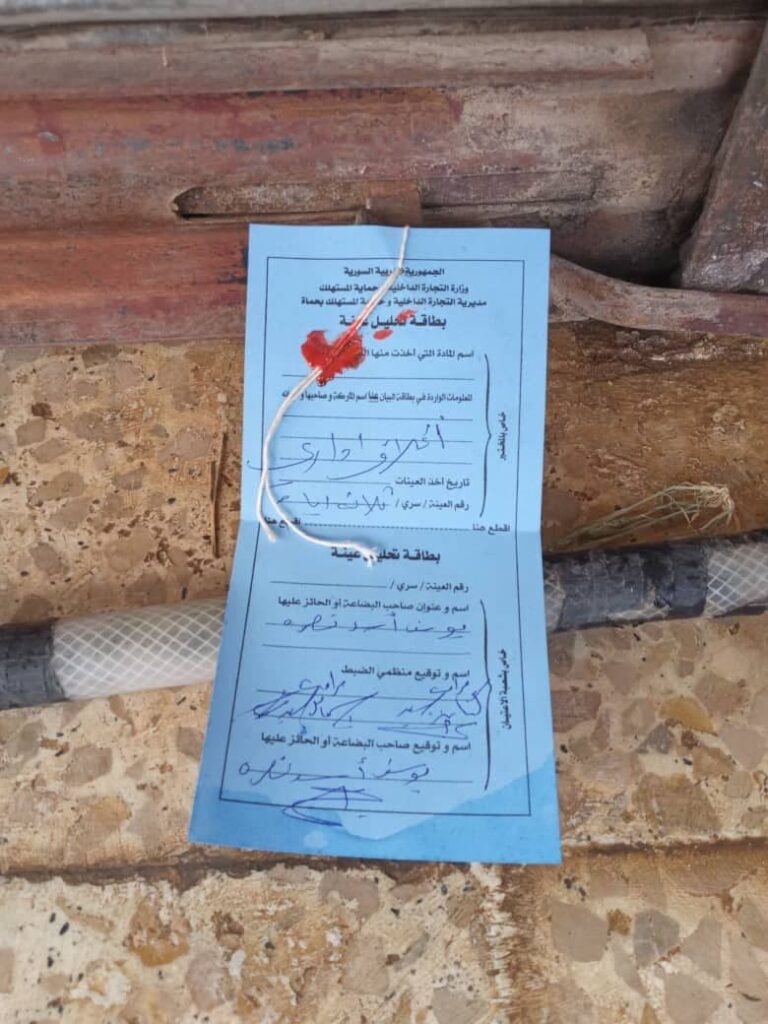 الجمهورية العربية السورية
وزارة التجارة الداخلية وحماية المستهلك
مديرية التجارة الداخلية و حماية المستهلك بحماة
بطاقة تحليل عينة
اسم المادة التي أخذت منها
المعلومات الواردة في بطاقة البيان عدا اسم الماركة و صاحبها و
أغلاق اداري
تاريخ أخذ العينات
رقم العينة / سري / ثلاث ايام
خاص بالمختبر
اقطع هنا اقطع هنا
بطاقة تحليل عينة
رقم العينة / سري /
اسم و عنوان صاحب البضاعة أو الحائز عليها
يوسف أسعد
اسم و توقيع منظمي الضبط
اسم و توقيع صاحب البضاعة أو الحائز عليها
يوسف أسعد
خاص بشعبة الائتمان